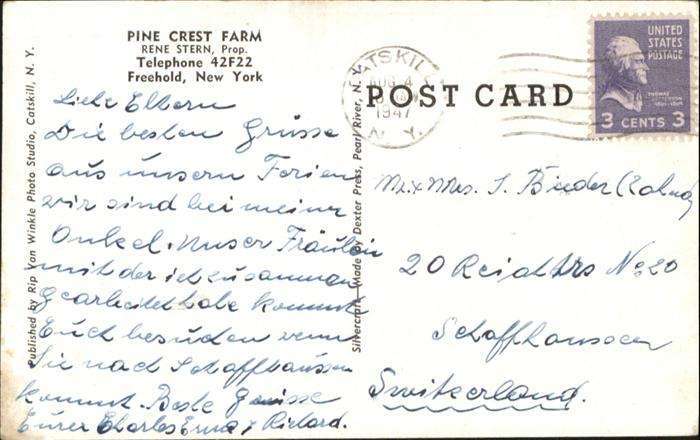 PINE CREST FARM
RENE STERN, Prop.
Telephone 42F22
Freehold, New York
Liebe Eltern
Die besten Grüsse
aus unsern Ferien
wir sind bei meinem
Onkel. Unser Fräulein
mit der ich zusammen
gearbeitet habe kommt
Euch besuchen wenn
Sie nach Schaffhausen
kommt. Beste Grüsse
Eurer Charles Erna & Richard.
Published by Rip Van Winkle Photo Studio, Catskill, N. Y.
Silvercraft Made by Dexter Press, Pearl River, N. Y.
CATSKILL
AUG 4
1947
N. Y.
POST CARD
UNITED
STATES
POSTAGE
THOMAS
JEFFERSON
3 CENTS 3
Mr & Mrs. S. Bieder
20 No 20
Schaffhausen
Switzerland.